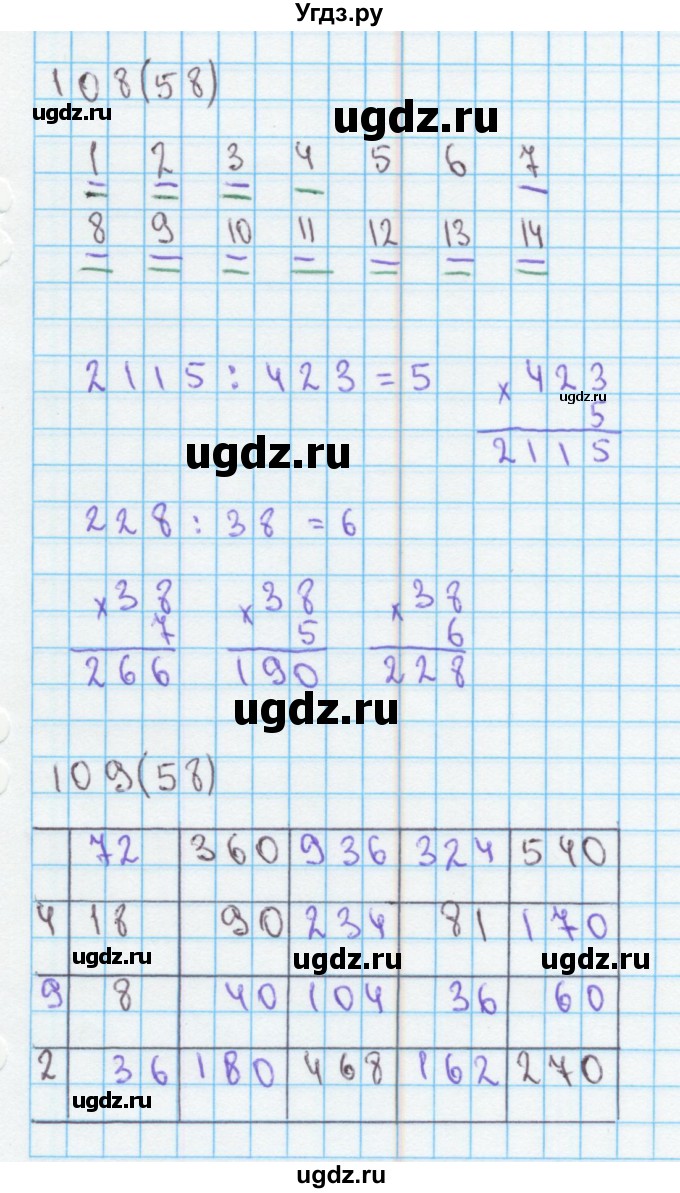 Угдз.ру
108(58)
ugdz.ru
ugdz.ru
1 2 3 4 5 6 7
8 9 10 11 12 13 14
2115 : 423 = 5
× 423
ugdz.ru
5
2115
ugdz.ru
228 : 38 = 6
× 38 × 38 × 38
7 5 6
266 190 228
ugdz.ru
109(58)
72 360 936 324 540
4 18 90 234 81 170
ugdz.ru ugdz.ru ugdz.ru
9 8 40 104 36 60
2 36 180 468 162 270
ugdz.ru
ugdz.ru